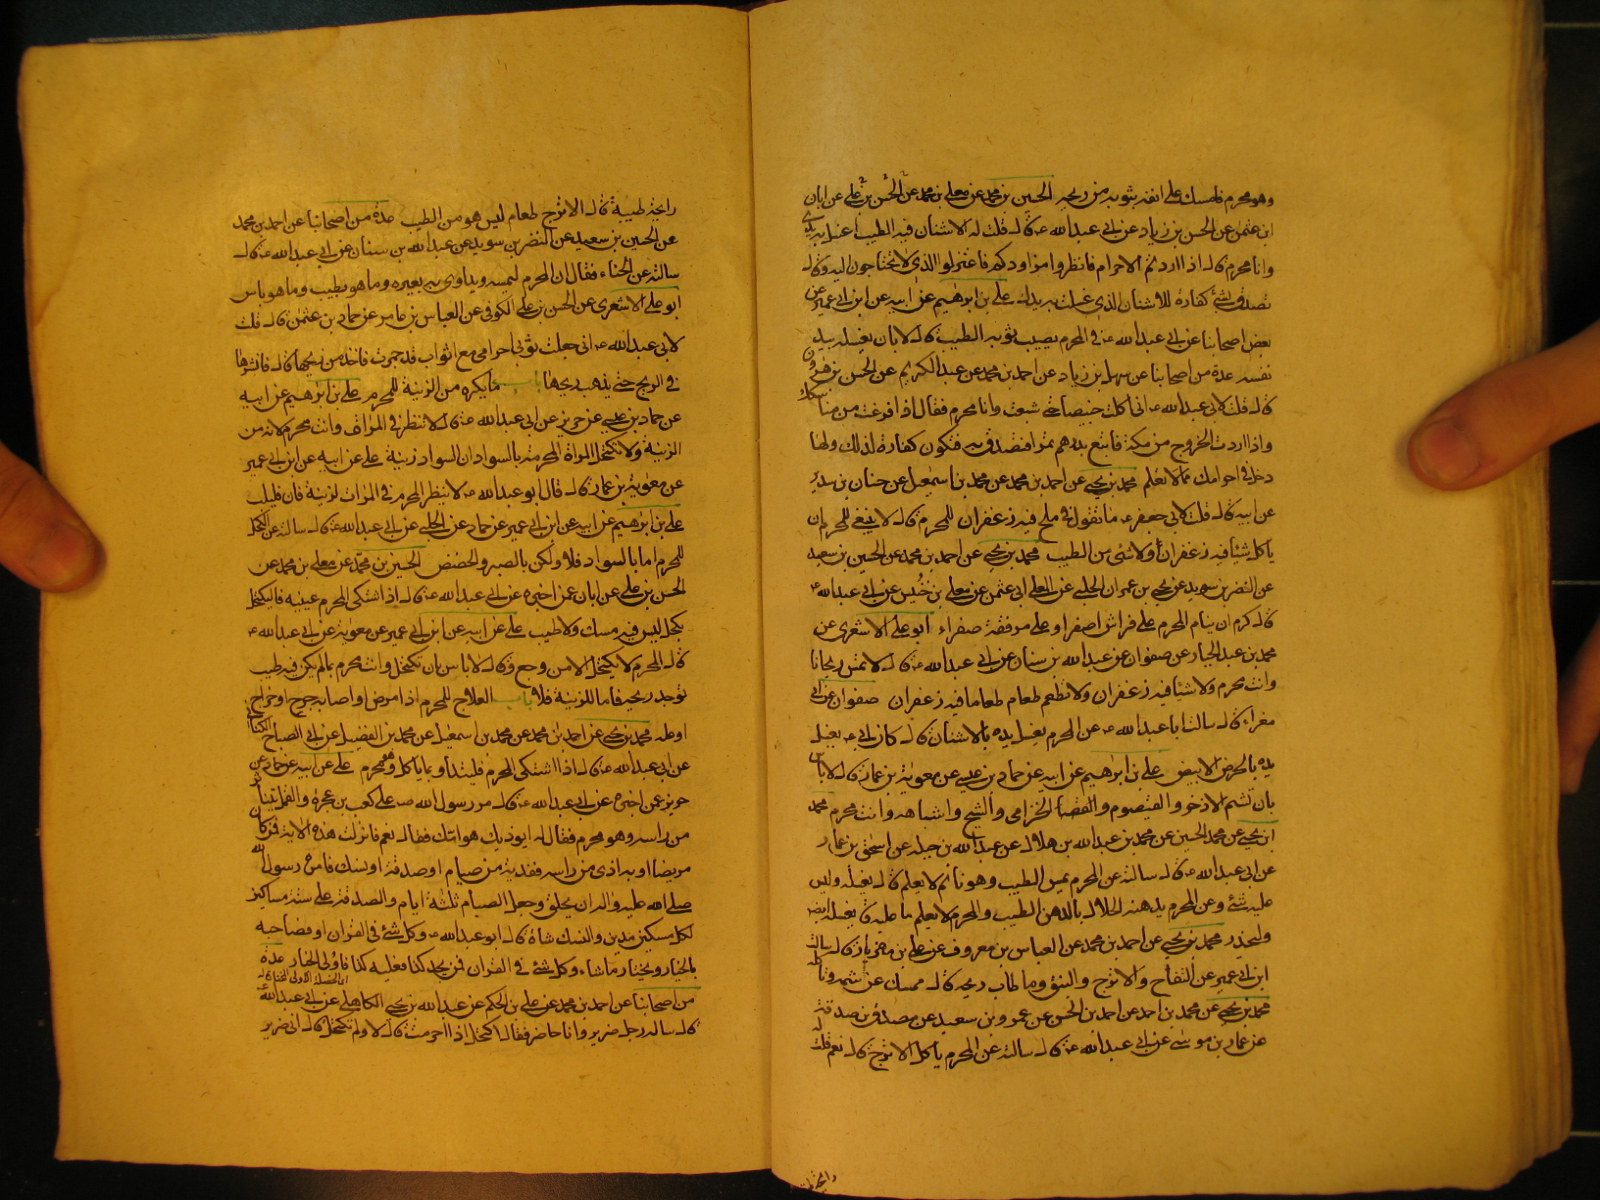 وهو محرم فامسك على انفه بثوبه من ريحه الحسين بن محمد عن معلى بن محمد عن الحسن بن على عن ابان
ابن عثمن عن الحسن بن زياد عن ابى عبدالله ع قال قلت له الاشنان فيه الطيب اغسل به يدى
وانا محرم قال اذا اردتم الاحرام فانظروا مزاودكم فاعزلوا الذى لا تحتاجون اليه وقال
تصدق بشئ كفارة للاشنان الذى غسلت به يدك على بن ابرهيم عن ابيه عن ابن ابى عمير عن
بعض اصحابنا عن ابى عبدالله ع فى المحرم يصيب ثوبه الطيب قال لا باس بان يغسله بيد
نفسه عدة من اصحابنا عن سهل بن زياد عن احمد بن محمد عن عبد الكريم عن الحسن بن هرون
قال قلت لابى عبدالله ع انى اكلت خبيصا حتى شبعت وانا محرم فقال اذا فرغت من مناسكك
واذا اردت الخروج من مكة فابتع بدرهم تمرا فتصدق به فتكون كفارة لذلك ولما
دخل فى احرامك مما لا تعلم محمد بن يحيى عن احمد بن محمد عن محمد بن اسمعيل عن حنان بن سدير
عن ابيه قال قلت لابى جعفر ع ما تقول فى ملح فيه زعفران للمحرم قال لا ينبغى للمحرم ان
ياكل شيئا فيه زعفران ولا شئ من الطيب محمد بن يحيى عن احمد بن محمد عن الحسين بن سعيد
عن النضر بن سويد عن يحيى بن عمران الحلبى عن المعلى ابى عثمن عن معلى بن خنيس عن ابى عبدالله ع
قال كره ان ينام المحرم على فراش اصفر او على مرفقة صفراء ابو على الاشعرى عن
محمد بن عبد الجبار عن صفوان عن عبدالله بن سنان عن ابى عبدالله ع قال لا تمس ريحانا
وانت محرم ولا شيئا فيه زعفران ولا تطعم طعاما فيه زعفران صفوان عن ابى
مغراء قال سالت ابا عبدالله ع عن المحرم يغسل يده بالاشنان قال كان ابى ع يغسل
يده بالحرض الابيض على بن ابرهيم عن ابيه عن حماد بن عيسى عن معوية بن عمار قال لا باس
بان تشم الاذخر والقيصوم والخزامى والشيح واشباهه وانت محرم محمد
ابن يحيى عن محمد الحسين عن محمد بن عبدالله بن هلال عن عبدالله بن جبله عن اسحق بن عمار
عن ابى عبدالله ع قال سالته عن المحرم يمس الطيب وهو نائم لا يعلم قال يغسله وليس
عليه شئ وعن المحرم يدهنه الحلال بالدهن الطيب والمحرم لا يعلم ما عليه قال يغسله ايضا
وليحذر محمد بن يحيى عن احمد بن محمد عن العباس بن معروف عن على بن مهزيار قال سالت
ابن ابى عمير عن التفاح والاترج والنبق وما طاب ريحه قال تمسك عن شمه وتاكله
محمد بن يحيى عن محمد بن احمد عن احمد بن الحسن عن عمرو بن سعيد عن مصدق بن صدقة
عن عمار بن موسى عن ابى عبدالله ع قال سالته عن المحرم ياكل الاترج قال نعم قلت له
رايحة طيبة قال الاترج طعام ليس هو من الطيب عدة من اصحابنا عن احمد بن محمد
عن الحسين بن سعيد عن النضر بن سويد عن عبدالله بن سنان عن ابى عبدالله ع قال
سالته عن الحناء فقال ان المحرم ليمسه ويداوى به بعيره وما هو بطيب وما به باس
ابو على الاشعرى عن الحسن بن على الكوفى عن العباس بن عامر عن حماد بن عثمن قال قلت
لابى عبدالله ع انى جعلت ثوبى احرامى مع اثواب قد جمرت فاخذ من ريحها قال فانشرها
فى الريح حتى يذهب ريحها باب ما يكره من الزينة للمحرم على بن ابرهيم عن ابيه
عن حماد بن عيسى عن حريز عن ابى عبدالله ع قال لا تنظر فى المراة وانت محرم لانه من
الزينة ولا تكتحل المراة المحرمة بالسواد ان السواد زينة على عن ابيه عن ابن ابى عمير
عن معوية بن عمار قال قال ابو عبدالله ع لا ينظر المحرم فى المراة لزينة فان فليلب
على بن ابرهيم عن ابيه عن ابن ابى عمير عن حماد عن الحلبى عن ابى عبدالله ع قال سالته عن الكحل
للمحرم اما بالسواد فلا ولكن بالصبر والحضض الحسين بن محمد عن معلى بن محمد عن
الحسن بن على عن ابان عن اخبره عن ابى عبدالله ع قال اذا اشتكى المحرم عينيه فليكتحل
بكحل ليس فيه مسك ولا طيب على عن ابيه عن ابن ابى عمير عن معوية عن ابى عبدالله ع
قال المحرم لا يكتحل الا من وجع وقال لا باس بان تكتحل وانت محرم بما لم يكن فيه طيب
يوجد ريحه فاما للزينة فلا باب العلاج للمحرم اذا مرض او اصابه جرح او خراج
او علة محمد بن يحيى عن احمد بن محمد عن محمد بن اسمعيل عن محمد بن الفضيل عن ابى الصباح الكنانى
عن ابى عبدالله ع قال اذا اشتكى المحرم فليتداو بما ياكل وهو محرم على عن ابيه عن حماد عن
حريز عمن اخبره عن ابى عبدالله ع قال مر رسول الله ص على كعب بن عجرة والقمل يتناثر
من راسه وهو محرم فقال له ايؤذيك هوامك فقال نعم فانزلت هذه الاية فمن كان
مريضا او به اذى من راسه ففدية من صيام او صدقة او نسك فامره رسول الله
صلى الله عليه واله ان يحلق وجعل الصيام ثلثة ايام والصدقة على ستة مساكين
لكل مسكين مدين والنسك شاة قال ابو عبدالله ع وكل شئ فى القران او فصاحبه
بالخيار ويختار ما شاء وكل شئ فى القران فمن لم يجد كذا فعليه كذا فاولى الخيار عدة
من اصحابنا عن احمد بن محمد عن على بن الحكم عن عبدالله بن يحيى الكاهلى عن ابى عبدالله ع
قال ساله رجل ضرير وانا حاضر فقال اكتحل اذا احرمت قال لا ولم تكتحل قال انى ضرير